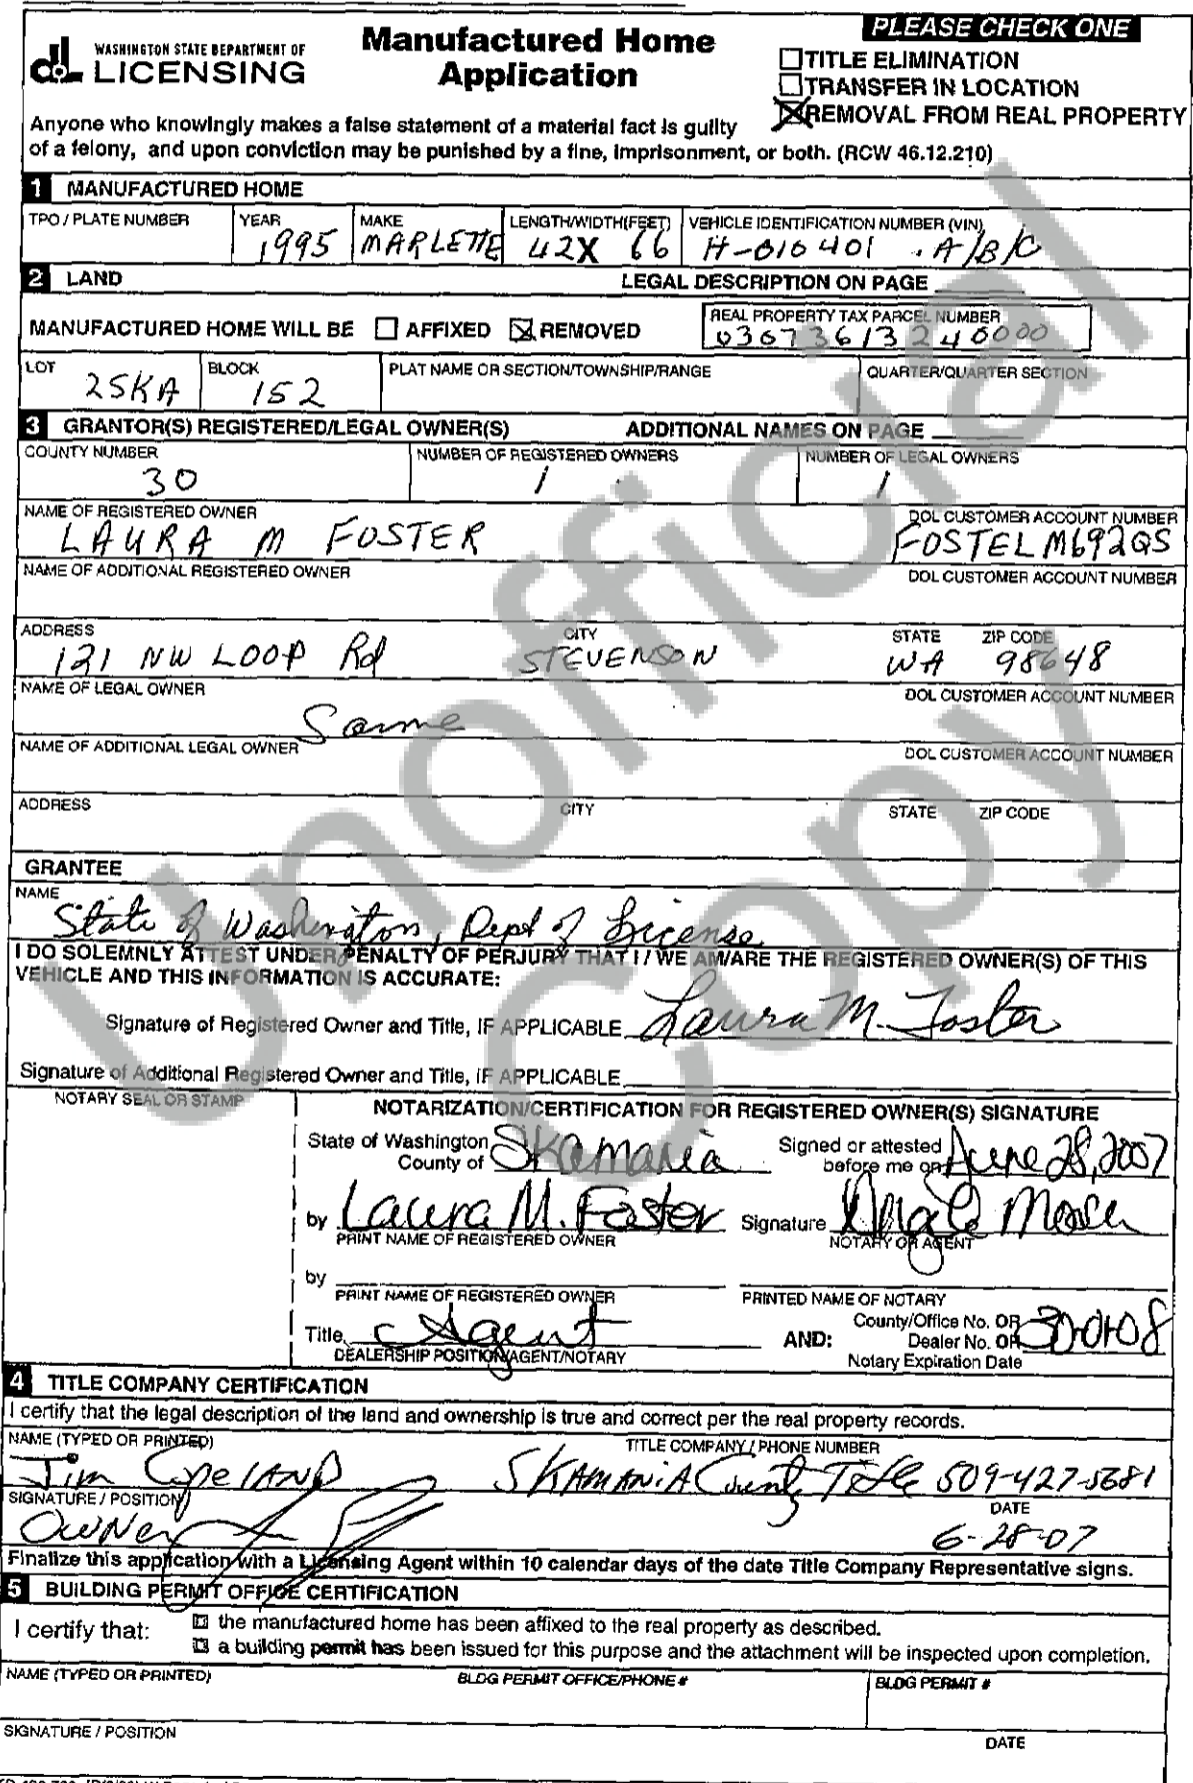 WASHINGTON STATE DEPARTMENT OF
LICENSING
Manufactured Home
Application
PLEASE CHECK ONE
TITLE ELIMINATION
TRANSFER IN LOCATION
REMOVAL FROM REAL PROPERTY
Anyone who knowingly makes a false statement of a material fact is guilty
of a felony, and upon conviction may be punished by a fine, imprisonment, or both. (RCW 46.12.210)
1 MANUFACTURED HOME
TPO / PLATE NUMBER YEAR MAKE LENGTH/WIDTH(FEET) VEHICLE IDENTIFICATION NUMBER (VIN)
1995 MARLETTE 42X 66 H-010401 . A/B/C
2 LAND LEGAL DESCRIPTION ON PAGE
MANUFACTURED HOME WILL BE AFFIXED REMOVED
REAL PROPERTY TAX PARCEL NUMBER
03073613240000
LOT BLOCK PLAT NAME OR SECTION/TOWNSHIP/RANGE QUARTER/QUARTER SECTION
25KA 152
3 GRANTOR(S) REGISTERED/LEGAL OWNER(S) ADDITIONAL NAMES ON PAGE
COUNTY NUMBER NUMBER OF REGISTERED OWNERS NUMBER OF LEGAL OWNERS
30 1 1
NAME OF REGISTERED OWNER DOL CUSTOMER ACCOUNT NUMBER
LAURA M FOSTER FOSTELM692QS
NAME OF ADDITIONAL REGISTERED OWNER DOL CUSTOMER ACCOUNT NUMBER
ADDRESS CITY STATE ZIP CODE
121 NW LOOP Rd STEVENSON WA 98648
NAME OF LEGAL OWNER DOL CUSTOMER ACCOUNT NUMBER
Same
NAME OF ADDITIONAL LEGAL OWNER DOL CUSTOMER ACCOUNT NUMBER
ADDRESS CITY STATE ZIP CODE
GRANTEE
NAME
State of Washington, Dept of License
I DO SOLEMNLY ATTEST UNDER PENALTY OF PERJURY THAT I / WE AM/ARE THE REGISTERED OWNER(S) OF THIS
VEHICLE AND THIS INFORMATION IS ACCURATE:
Signature of Registered Owner and Title, IF APPLICABLE Laura M. Foster
Signature of Additional Registered Owner and Title, IF APPLICABLE
NOTARY SEAL OR STAMP
NOTARIZATION/CERTIFICATION FOR REGISTERED OWNER(S) SIGNATURE
State of Washington
County of Skamania
Signed or attested
before me on June 28, 2007
by Laura M. Foster Signature
PRINT NAME OF REGISTERED OWNER NOTARY OR AGENT
by
PRINT NAME OF REGISTERED OWNER PRINTED NAME OF NOTARY
Title Agent AND:
DEALERSHIP POSITION/AGENT/NOTARY
County/Office No. OR
Dealer No. OR 30-01-08
Notary Expiration Date
4 TITLE COMPANY CERTIFICATION
I certify that the legal description of the land and ownership is true and correct per the real property records.
NAME (TYPED OR PRINTED) TITLE COMPANY / PHONE NUMBER
Jim Copeland SKAMANIA County Title 509-427-5681
SIGNATURE / POSITION DATE
Owner 6-28-07
Finalize this application with a Licensing Agent within 10 calendar days of the date Title Company Representative signs.
5 BUILDING PERMIT OFFICE CERTIFICATION
I certify that: the manufactured home has been affixed to the real property as described.
a building permit has been issued for this purpose and the attachment will be inspected upon completion.
NAME (TYPED OR PRINTED) BLDG PERMIT OFFICE/PHONE # BLDG PERMIT #
SIGNATURE / POSITION DATE
Unofficial
Copy